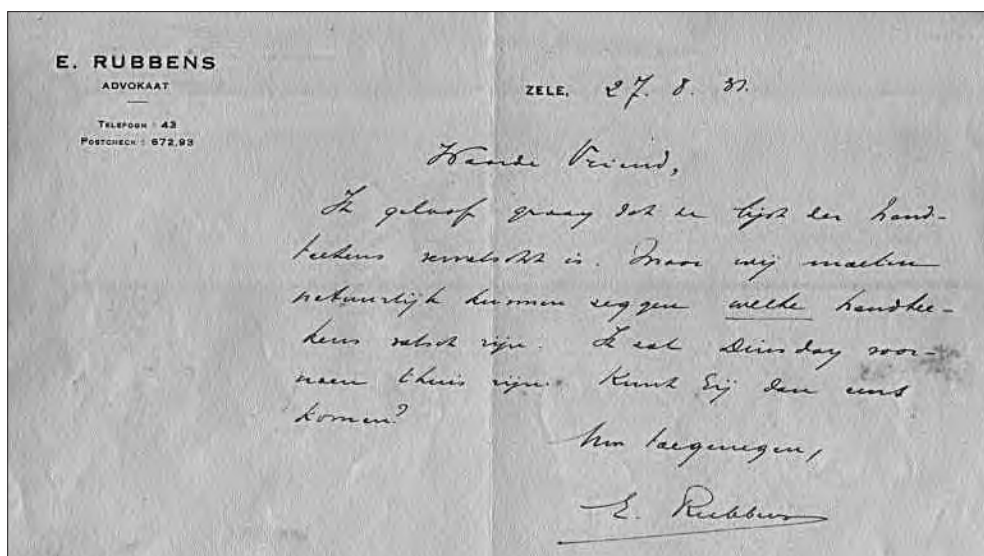 E. RUBBENS
ADVOKAAT
TELEFOON : 43
POSTCHECK : 672,93
ZELE, 27. 8. 31.
Waarde Vriend,
Ik geloof graag dat de lijst der hand-
teekens vervalscht is. Maar wij moeten
natuurlijk kunnen zeggen welke handtee-
kens valsch zijn. Ik zal Dinsdag voor-
noen thuis zijn. Kunt Gij dan eens
komen?
Uw toegenegen,
E. Rubbens